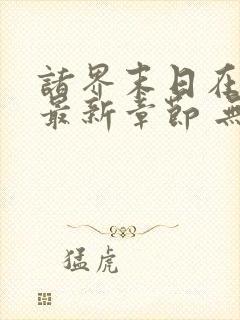 諸界末日在
最新章節 無
猛虎